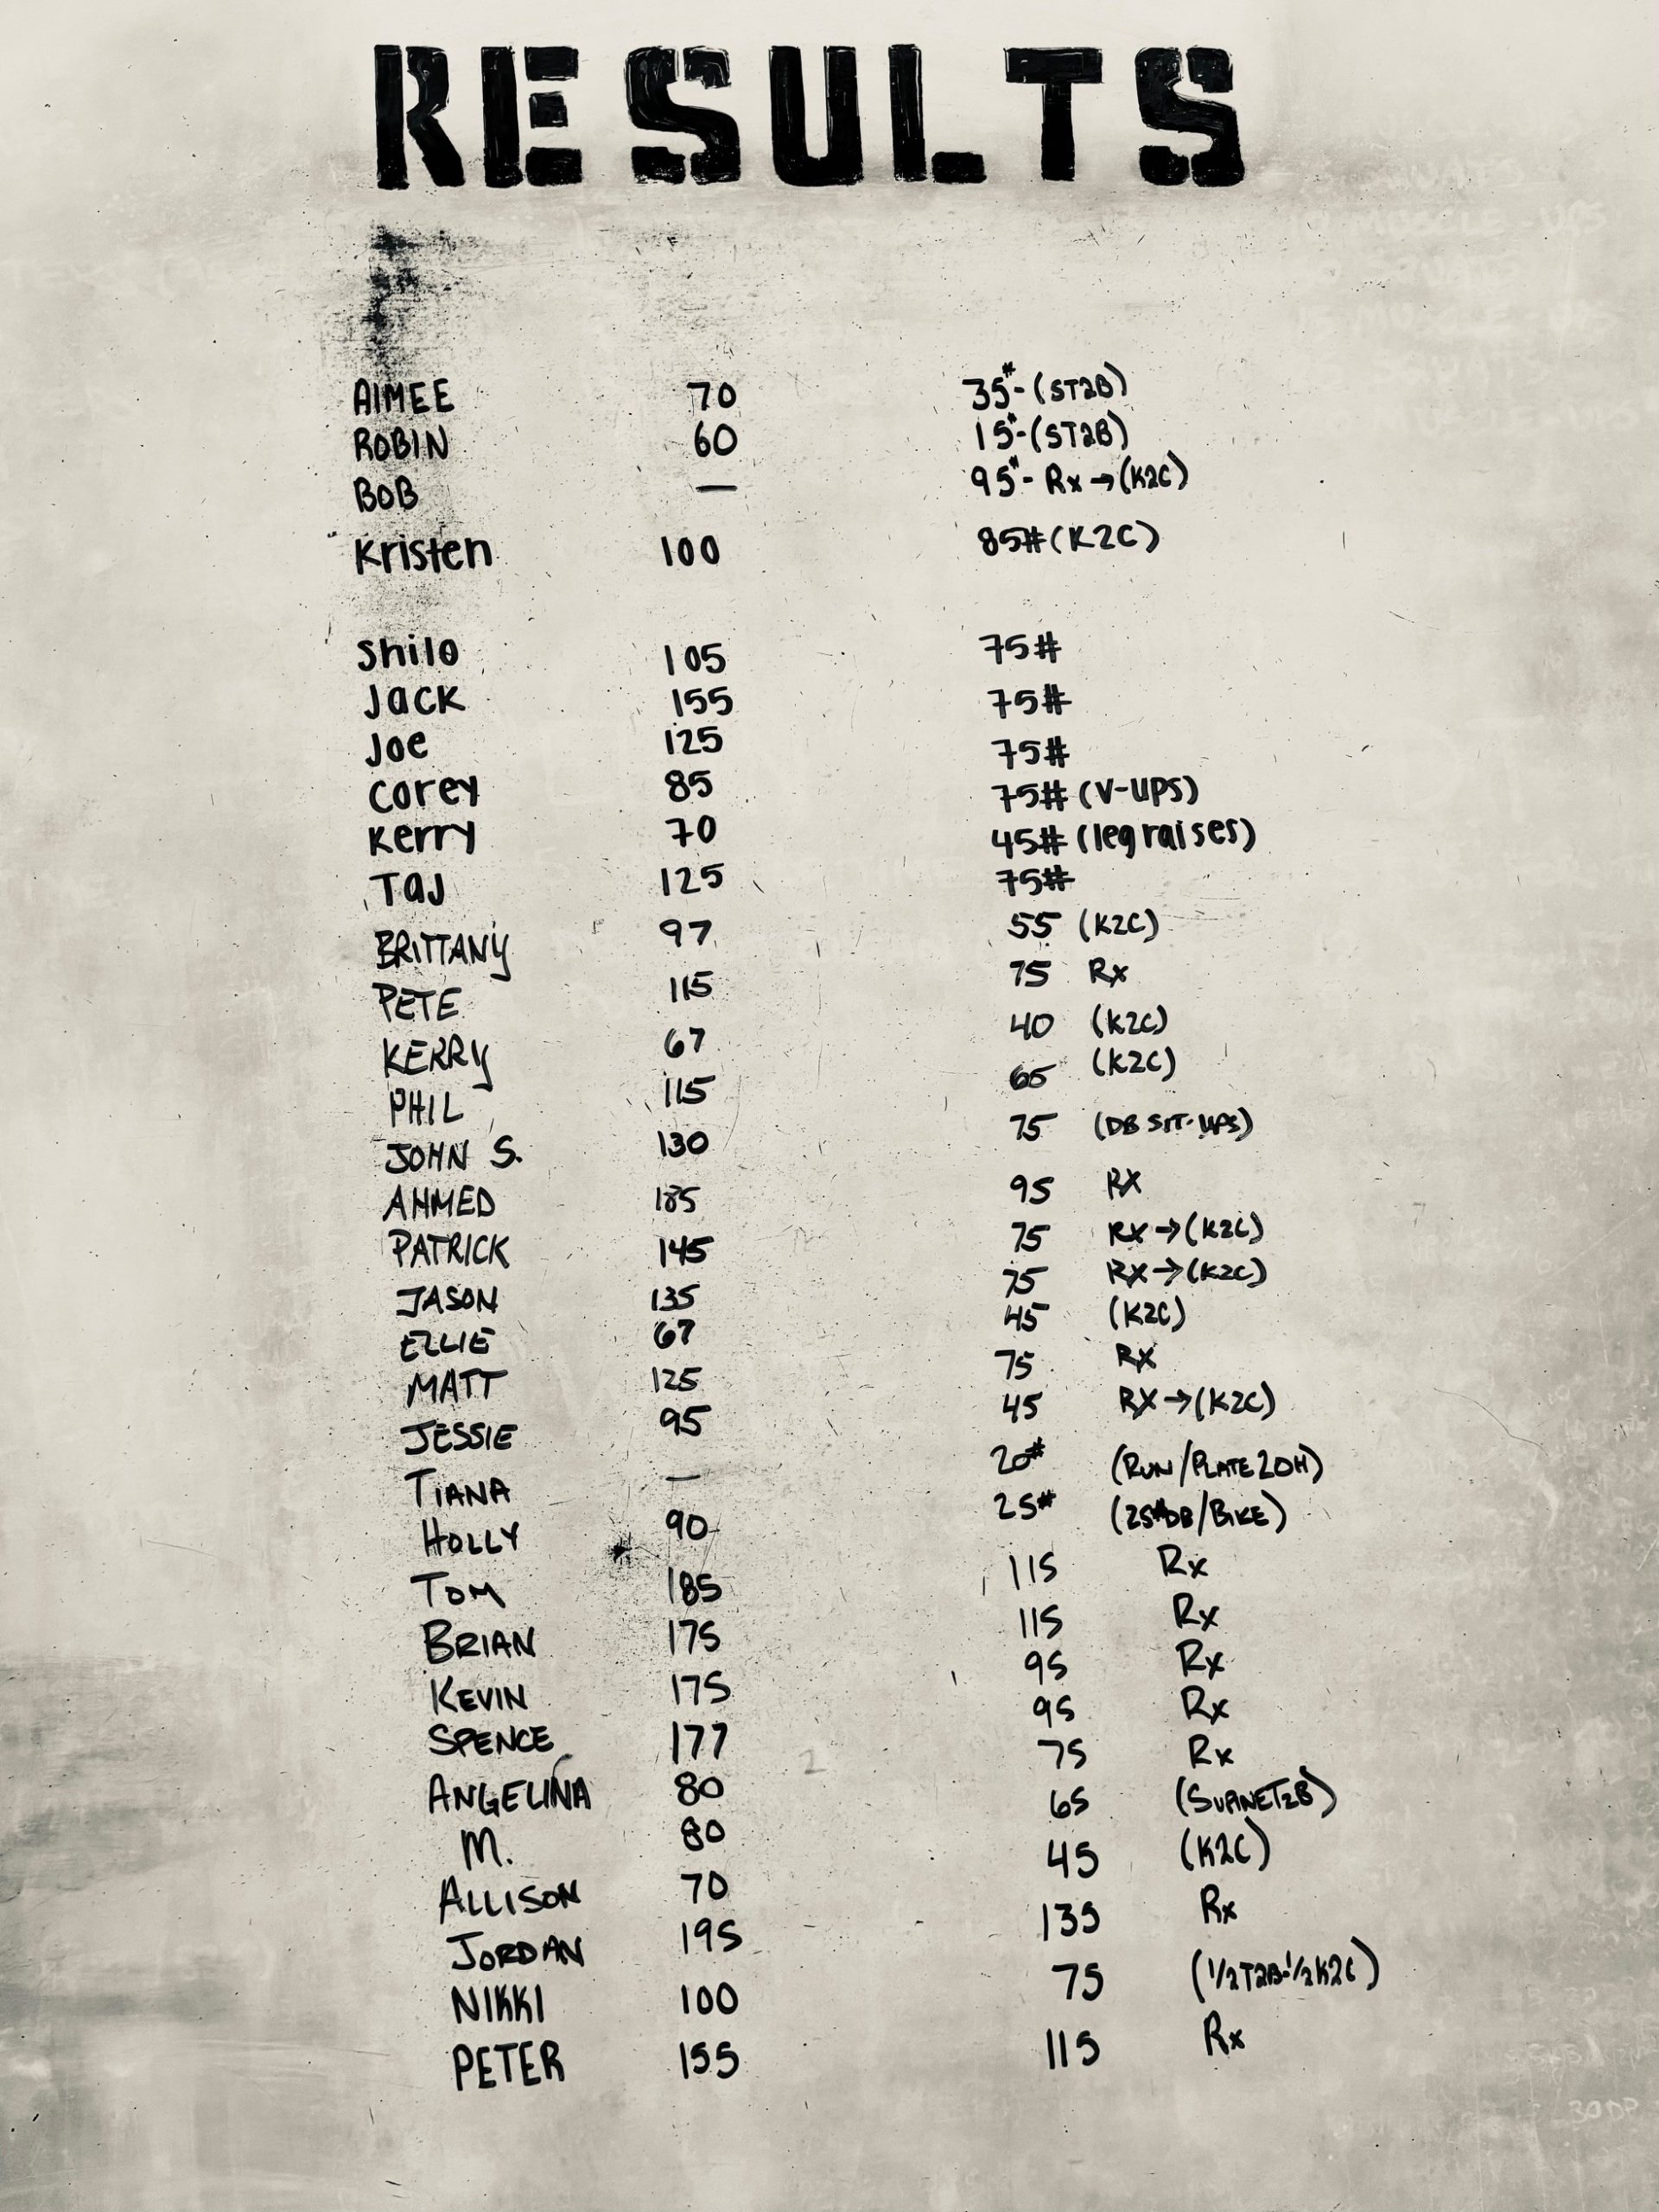 RESULTS
AIMEE 70 35#-(ST2B)
ROBIN 60 15#-(ST2B)
BOB — 95#- Rx → (K2C)
Kristen 100 85# (K2C)
Shilo 105 75#
Jack 155 75#
Joe 125 75#
Corey 85 75# (V-UPS)
Kerry 70 45# (leg raises)
TaJ 125 75#
BRITTANY 97 55 (K2C)
PETE 115 75 Rx
KERRY 67 40 (K2C)
PHIL 115 65 (K2C)
JOHN S. 130 75 (DB SIT-UPS)
AHMED 185 95 RX
PATRICK 145 75 RX → (K2C)
JASON 135 75 RX → (K2C)
ELLIE 67 45 (K2C)
MATT 125 75 RX
JESSIE 95 45 RX → (K2C)
TIANA — 20# (RUN/PLATE 2OH)
HOLLY 90 25# (25#DB/BIKE)
TOM 185 115 Rx
BRIAN 175 115 Rx
KEVIN 175 95 Rx
SPENCE 177 95 Rx
ANGELINA 80 75 Rx
M. 80 65 (SUPINET2B)
ALLISON 70 45 (K2C)
JORDAN 195 135 Rx
NIKKI 100 75 (1/2T2B-1/2K2C)
PETER 155 115 Rx